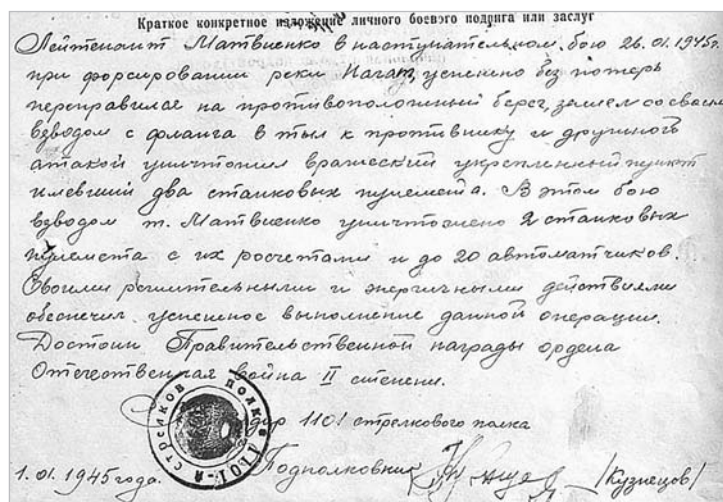 Краткое конкретное изложение личного боевого подвига или заслуг
Лейтенант Матвиенко в наступательном бою 26.01.1945г.
при форсировании реки Нагат, успешно без потерь
переправился на противоположный берег, зашел со своим
взводом с фланга в тыл к противнику и дружной
атакой уничтожил вражеский укрепленный пункт
имевший два станковых пулемета. В этом бою
взводом т. Матвиенко уничтожено 2 станковых
пулемета с их росчетами и до 20 автоматчиков.
Своими решительными и энергичными действиями
обеспечил успешное выполнение данной операции.
Достоин Правительственной награды ордена
Отечественная война II степени.
1101 стрелкового полка
Подполковник /Кузнецов/
1.01.1945 года.